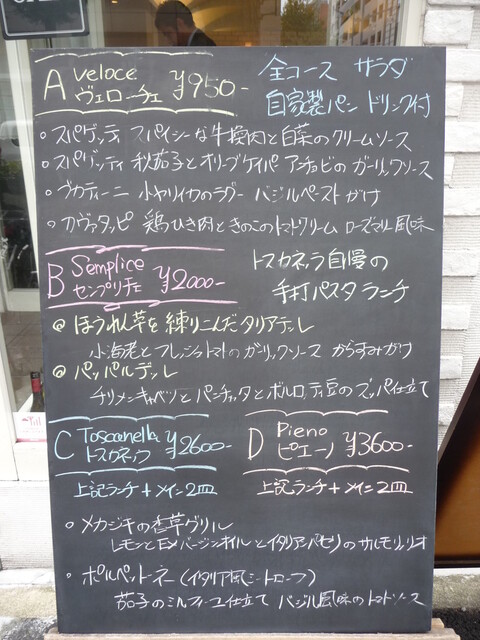 A Veloce ヴェローチェ ¥950-
全コース サラダ
自家製パン ドリンク付
。スパゲッティ スパイシーな牛挽肉と白菜のクリームソース
。スパゲッティ 秋茄子とオリーブケイパー アンチョビのガーリックソース
。ブカティーニ 小ヤリイカのラグー バジルペーストがけ
。カヴァタッピ 鶏ひき肉ときのこのトマトクリーム ローズマリー風味
B Semplice センプリチェ ¥2000-
トスカネッラ自慢の
手打パスタランチ
@ ほうれん草を練りこんだタリアテッレ
小海老とフレッシュトマトのガーリックソース からすみがけ
@ パッパルデッレ
チリメンキャベツとパンチェッタとボルロッティ豆のズッパ仕立て
C Toscanella トスカネッラ ¥2600-
上記ランチ+メイン2皿
D Pieno ピエーノ ¥3600-
上記ランチ+メイン2皿
。メカジキの香草グリル
レモンとEXバージンオイルとイタリアンパセリのサルモリッリオ
。ポルペットーネ(イタリア風ミートローフ)
茄子のミルフィーユ仕立て バジル風味のトマトソース